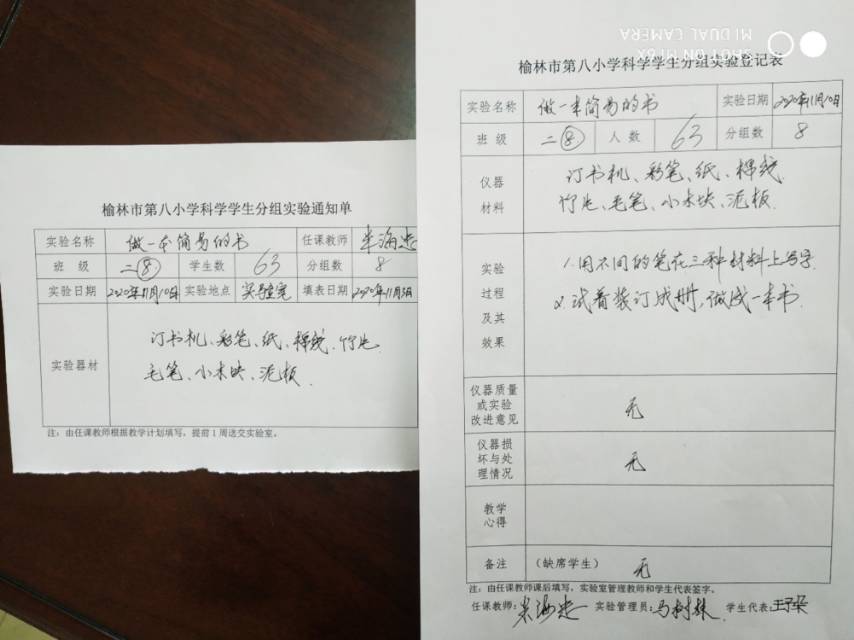 榆林市第八小学科学学生分组实验通知单
实验名称 做一本简易的书 任课教师 米海忠
班 级 二⑧ 学生数 63 分组数 8
实验日期 2020年11月10日 实验地点 实验室 填表日期 2020年11月3日
实验器材
订书机、彩笔、纸、棉线、竹片
毛笔、小木块、泥板.
注:由任课教师根据教学计划填写,提前1周送交实验室。
SHOT ON MI 6X
MI DUAL CAMERA
榆林市第八小学科学学生分组实验登记表
实验名称 做一本简易的书 实验日期 2020年11月10日
班 级 二⑧ 人 数 63 分组数 8
仪器
材料
订书机、彩笔、纸、棉线
竹片、毛笔、小木块、泥板.
实验
过程
及其
效果
1.用不同的笔在三种材料上写字
2.试着装订成册,做成一本书
仪器质量
或实验
改进意见
无
仪器损
坏与处
理情况
无
教学
心得
备注 (缺席学生) 无
注:由任课教师课后填写,实验室管理教师和学生代表签字。
任课教师:米海忠 实验管理员:马树林 学生代表:王子朵